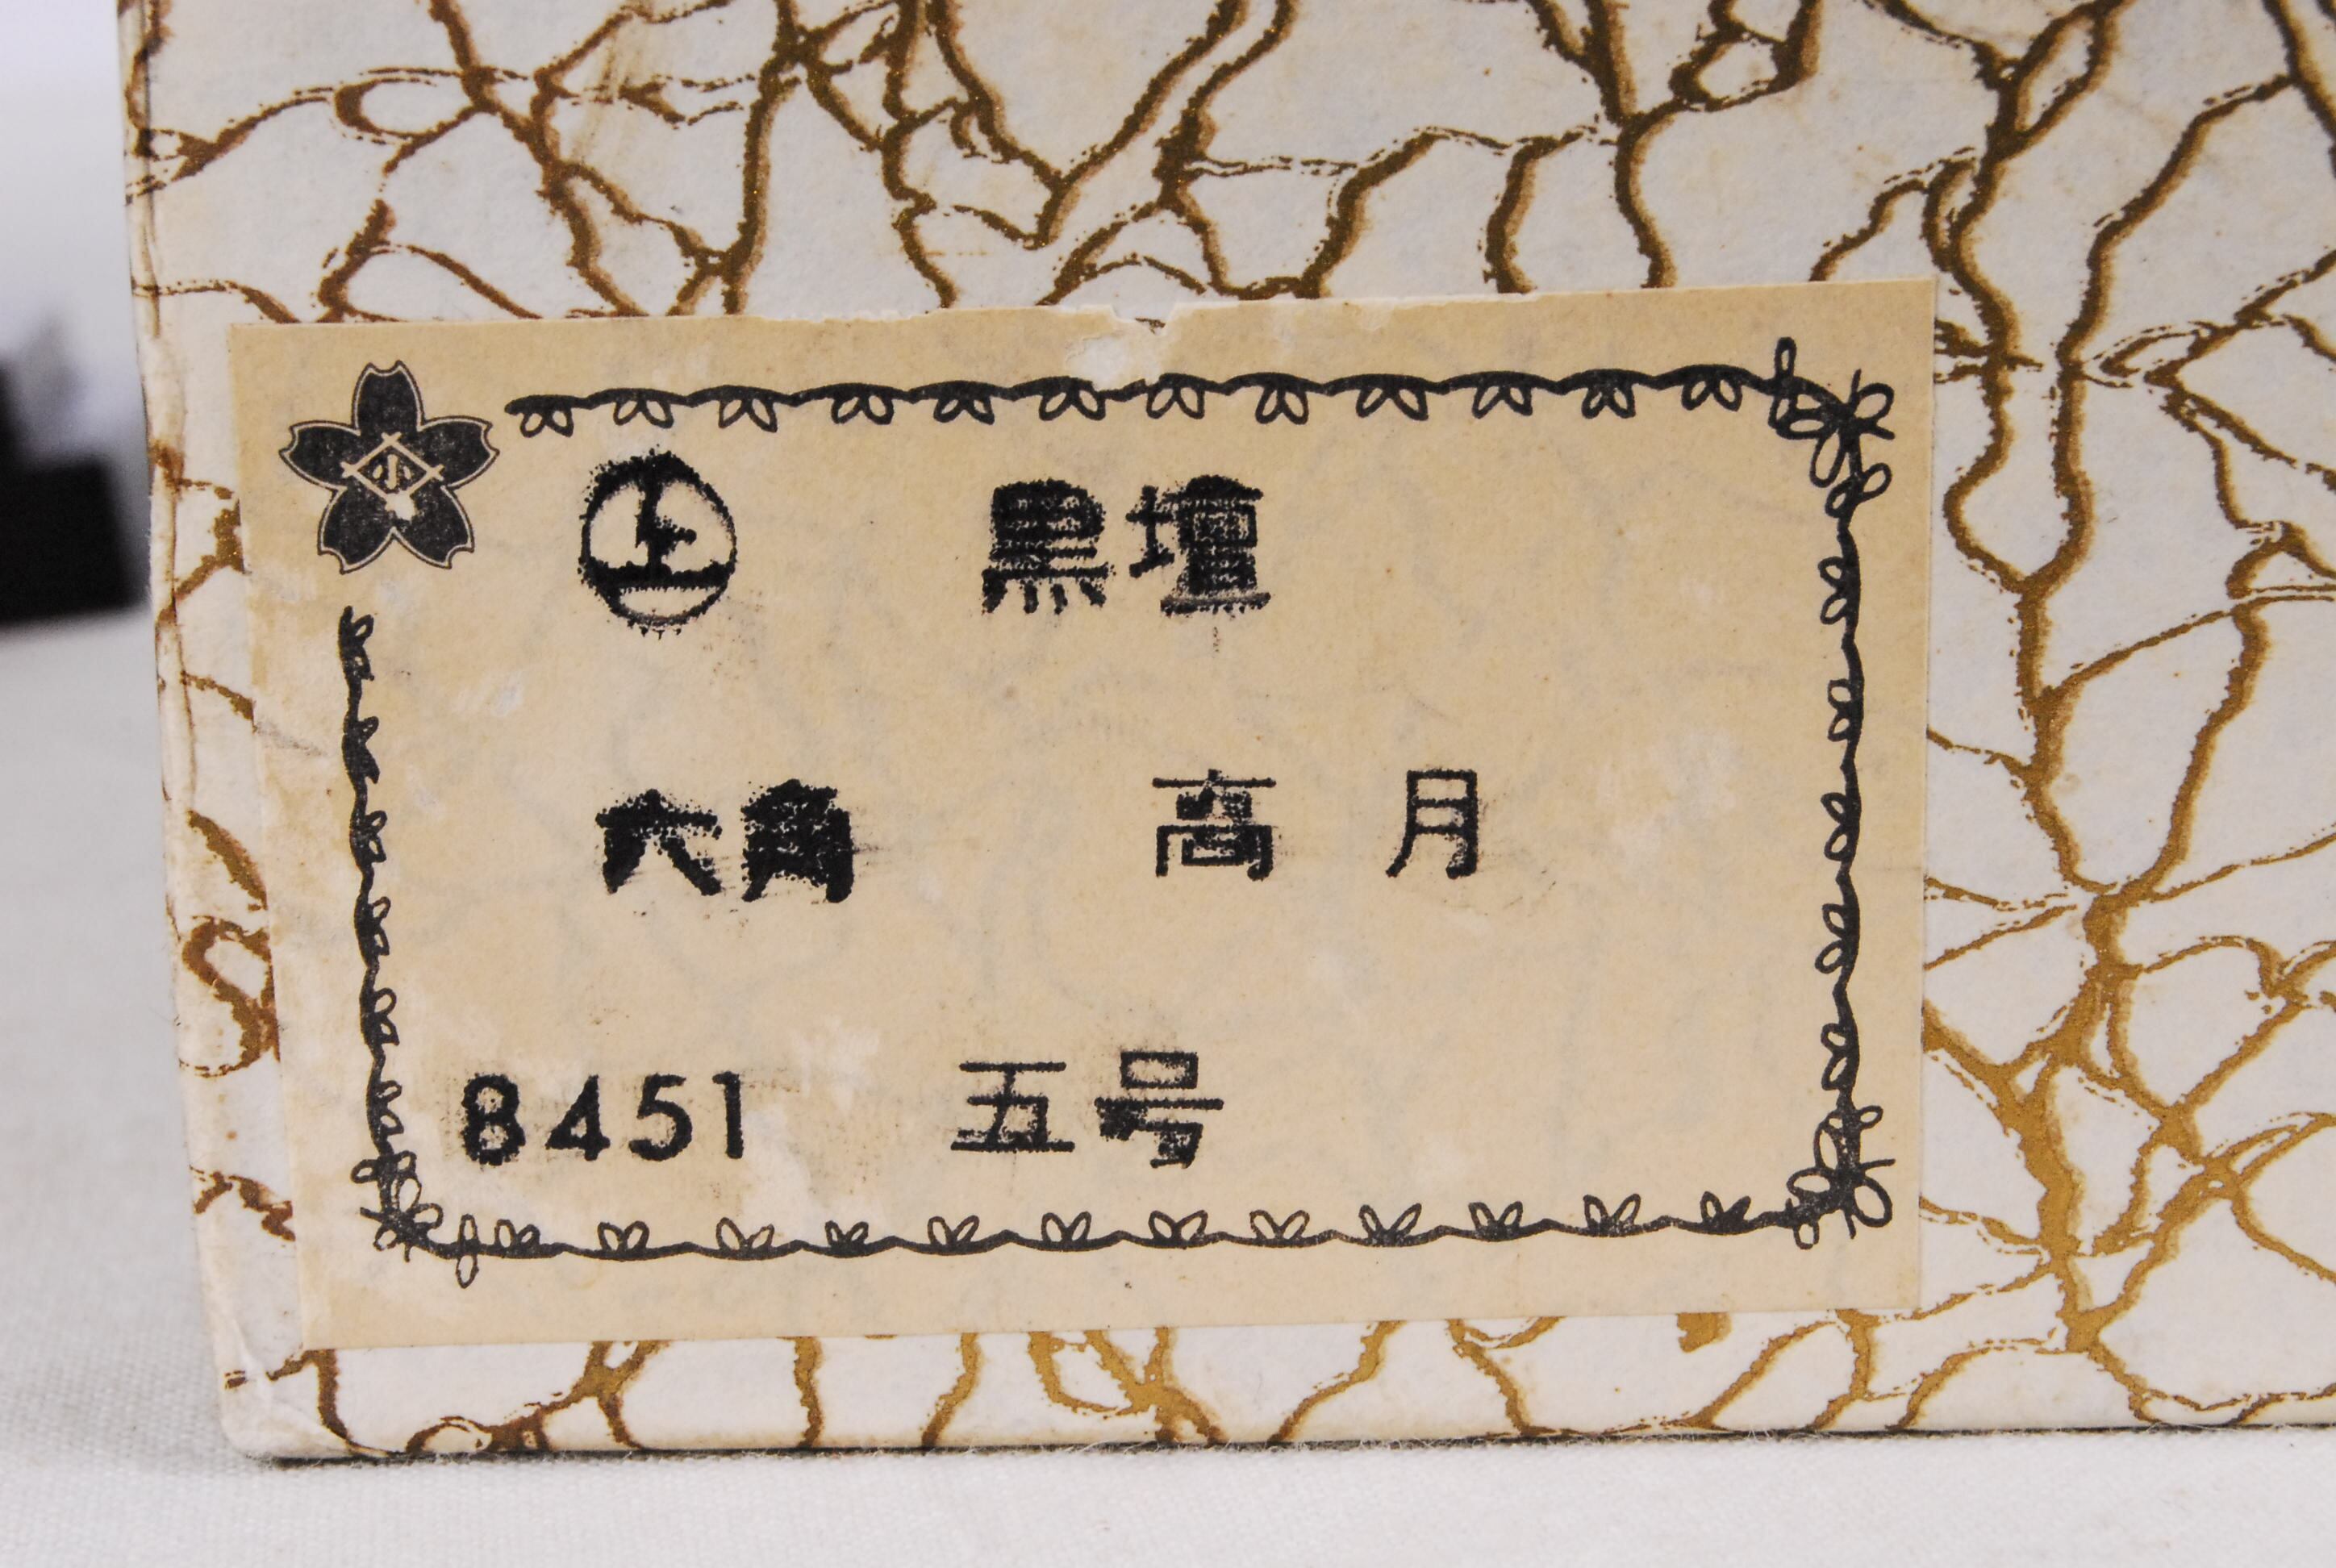 小
上 黒壇
六角 高月
8451 五号